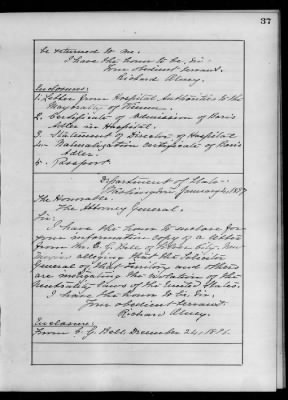 37
be returned to me.
I have the honor to be, Sir,
Your obedient servant,
Richard Olney.
Enclosures:
1. Letter from Hospital Authorities to the
Mayoralty of Vienna.
2. Certificate of admission of Boris
Adler in Hospital.
3. Statement of Director of Hospital
4. Naturalization certificate of Boris
Adler.
5. Passport.
Department of State.
Washington, January 4, 1897
The Honorable
The Attorney General.
Sir:
I have the honor to enclose for
your information copy of a letter
from Mr. C. G. Bell of City, New
Mexico alleging that the Solicitor
General of that Territory and others
are instigating the violation of the
neutrality laws of the United States.
I have the honor to be, Sir,
Your obedient servant,
Richard Olney.
Enclosure:
From C. G. Bell, December 24, 1896.